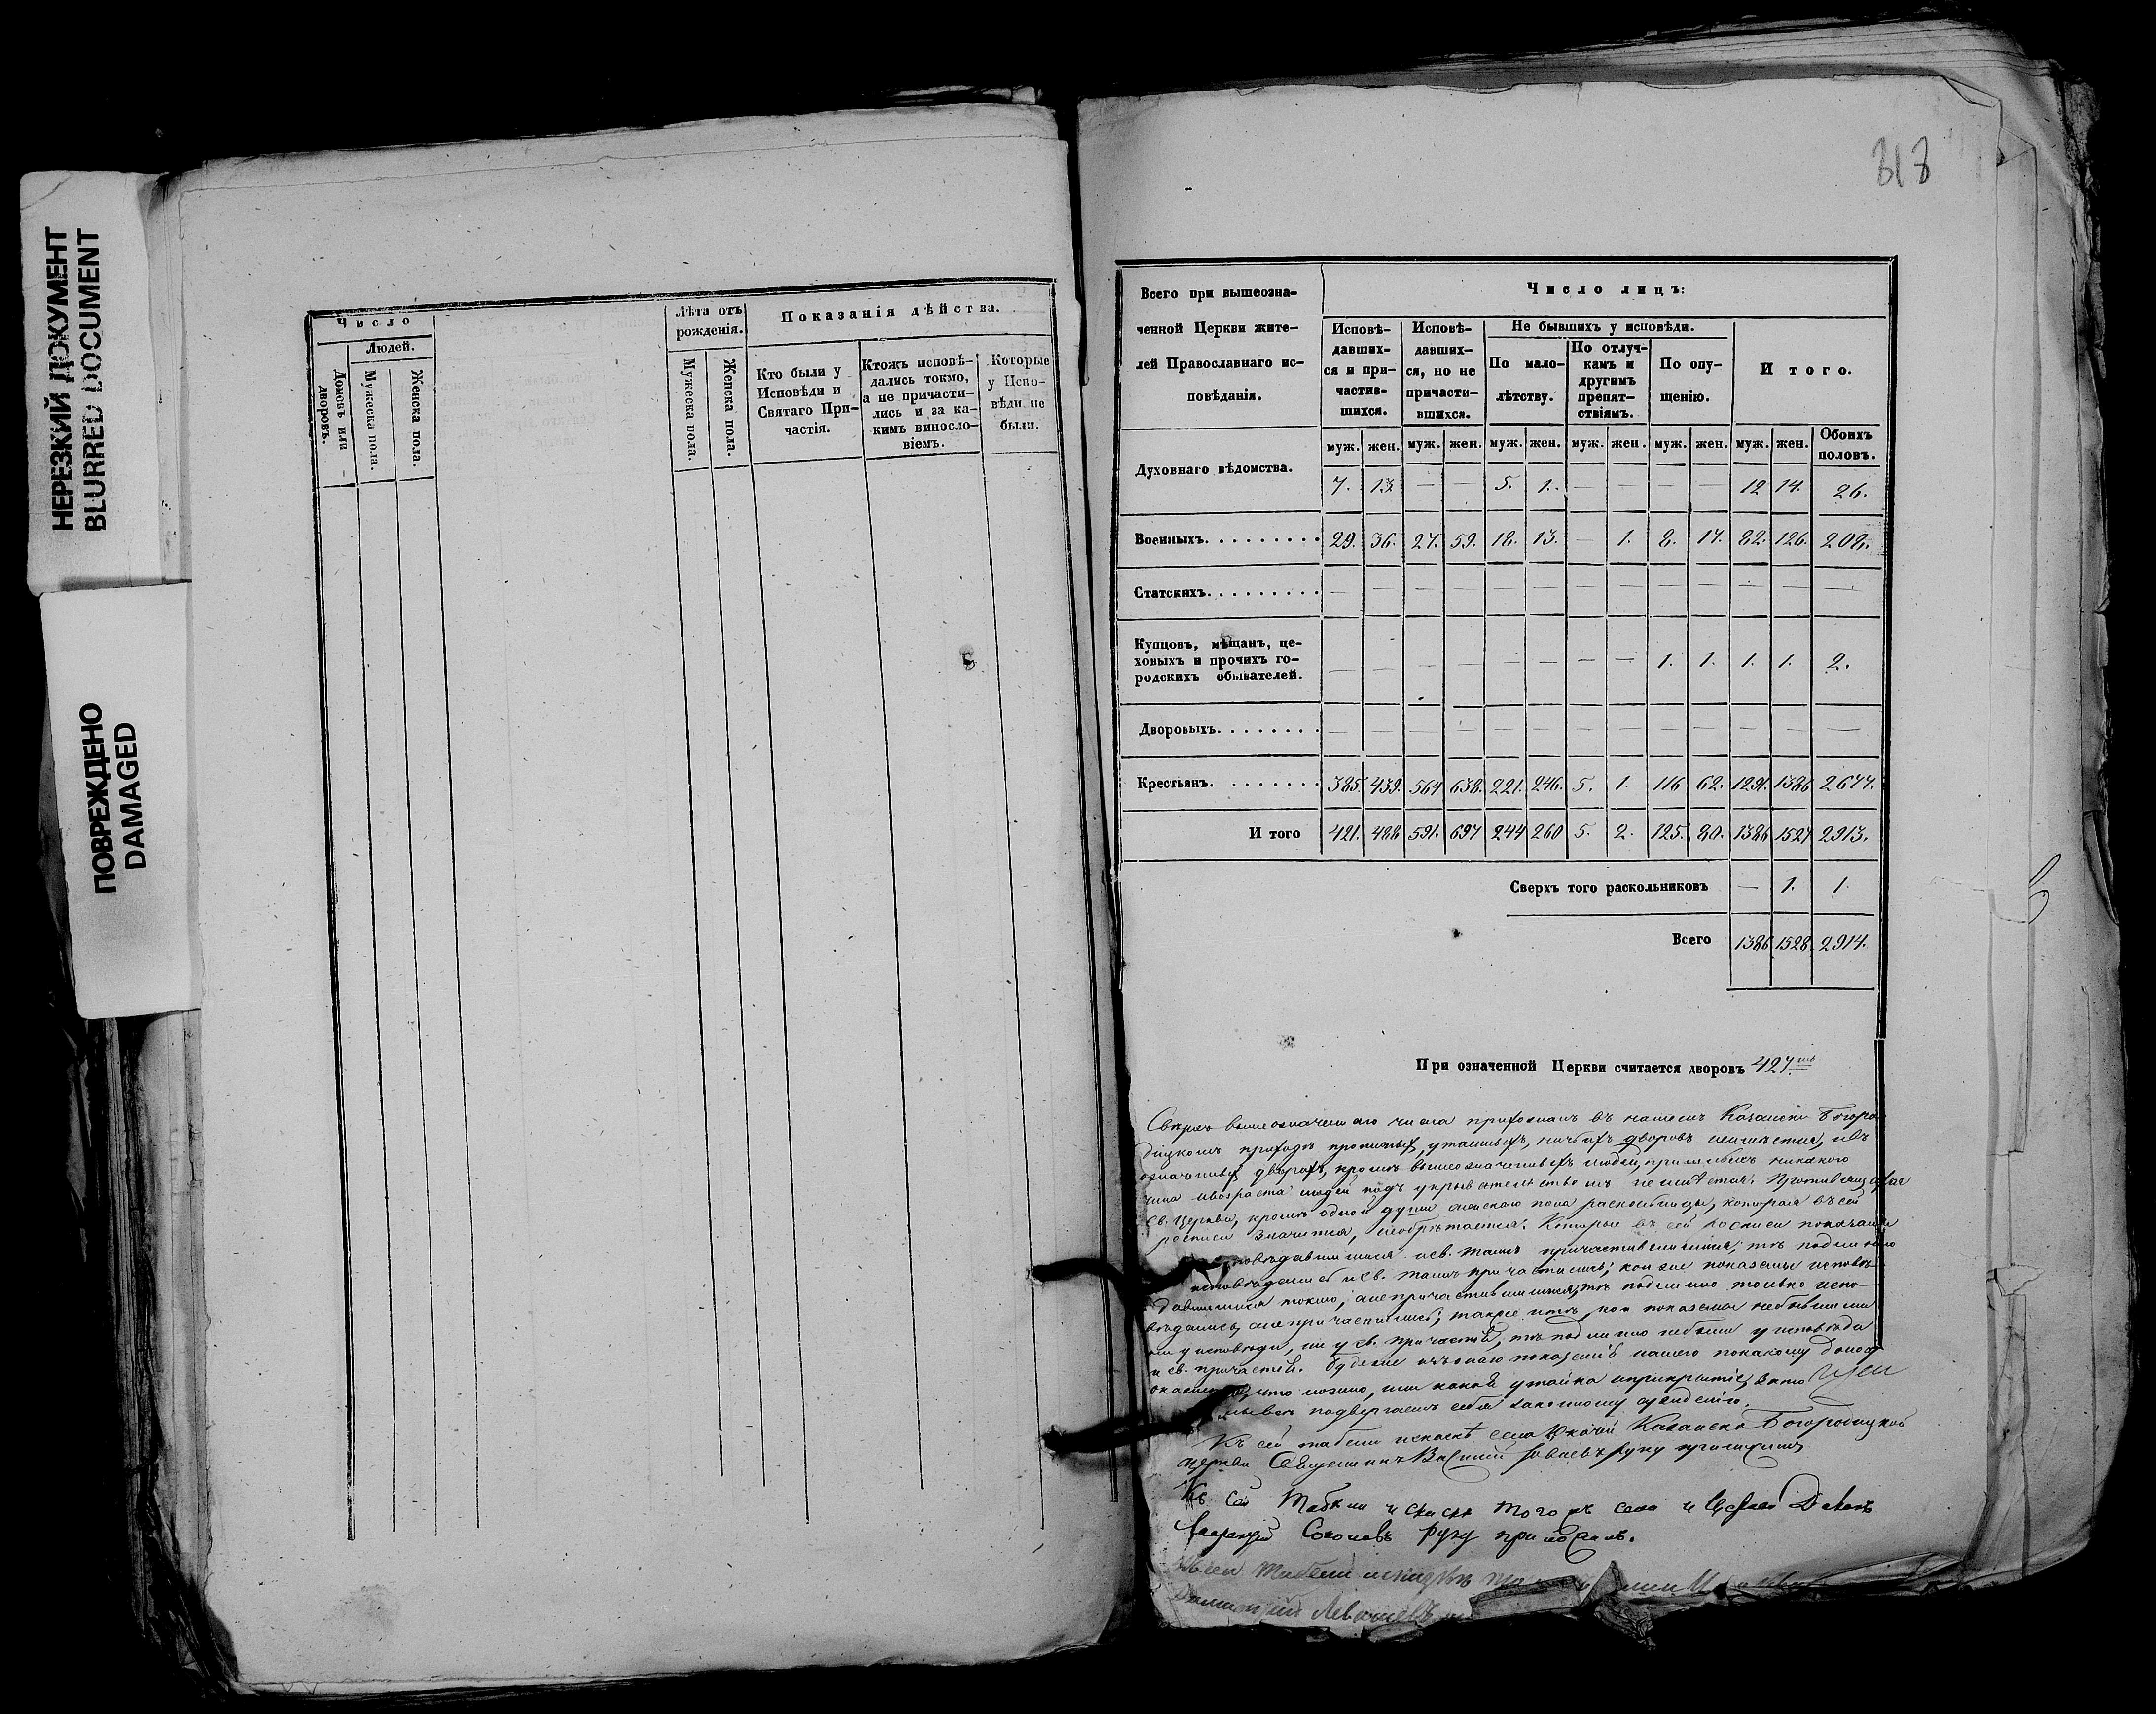 НЕРЕЗКИЙ ДОКУМЕНТ
BLURRED DOCUMENT
ПОВРЕЖДЕНО
DAMAGED
Число
Людей.
Домовъ или дворовъ.
Мужеска пола.
Женска пола.
Лѣта отъ рожденія.
Мужеска пола.
Женска пола.
Показанія дѣйства.
Кто были у Исповѣди и Святаго При-частія.
Ктожъ исповѣ-дались токмо, а не причасти-лись и за ка-кимъ винословіемъ.
Которые у Испо-вѣди не были.
318
Всего при вышеозна-
ченной Церкви жите-
лей Православнаго ис-
повѣданія.
Число лицъ:
Исповѣ-давших-ся и при-частив-шихся.
Исповѣ-давших-ся, но не причасти-вшихся.
Не бывшихъ у исповѣди.
По мало-лѣтству.
По отлуч-камъ и другимъ препят-ствіямъ.
По опу-щенію.
Итого.
муж. жен. муж. жен. муж. жен. муж. жен. муж. жен. муж. жен. Обоихъ половъ.
Духовнаго вѣдомства. 7. 13. — — 5. 1. — — — — 12 14. 26.
Военныхъ. 29. 36. 27. 59. 18. 13. — 1. 8. 17. 82. 126. 208.
Статскихъ. — — — — — — — — — — — — —
Купцовъ, мѣщанъ, це-
ховыхъ и прочихъ го-
родскихъ обывателей. — — — — — — — — 1. 1. 1. 1. 2.
Дворовыхъ. — — — — — — — — — — — — —
Крестьянъ. 385. 439. 564 638. 221. 246. 5. 1. 116 62. 1291. 1386 2677.
Итого 421. 488 591. 697 244 260 5. 2. 125. 80. 1386 1527 2913.
Сверхъ того раскольниковъ — 1. 1
Всего 1386 1528. 2914.
При означенной Церкви считается дворовъ 427мь
Сверхъ вышеозначеннаго числа прихожанъ въ нашемъ Казанско Богоро-
дицкомъ приходѣ прописныхъ, утаенныхъ, дворовъ
означенныхъ дворахъ, кромѣ вышеозначенныхъ людей, никакого
чина и возраста людей подъ укрывательствомъ не имѣется. Противящихся
Св. Церкви, кромѣ одной души женскаго пола раскольницы, которая въ сей
росписи значится, необрѣтается. Которые въ сей росписи показаны
исповѣдавшимися и св. таинъ причастившимися, тѣ подлинно
исповѣдались и св. таинъ причастились; кои же показаны исповѣ-
давшимися токмо, а не причастившимися, тѣ подлинно только испо-
вѣдались, а не причастились; также и тѣ, кои показаны небывшими
ни у исповѣди, ни у св. причастія, тѣ подлинно не были у исповѣди
и св. причастія. Буде же показанія нашего по какому доносу
что ложно, или какая утайка и прикрытіе, за то
подвергаемъ себя законному сужденію.
Къ сей табели и сказкѣ села Казанско Богородицкой
церкви Священникъ Василій руку приложилъ
Къ сей Табели и сказкѣ того жъ села и Церкви
Соколовъ руку приложилъ.
Къ сей Табели и сказкѣ